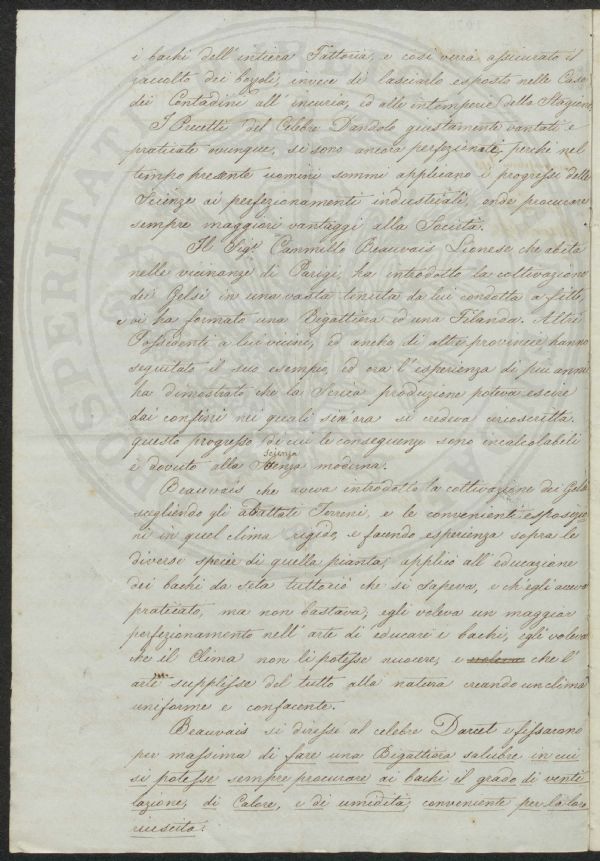 i bachi dell'intiera Fattoria, e così verrà assicurato il
raccolto dei bozoli, invece di lasciarlo esposto nelle Case
dei Contadini all'incuria, ed alle intemperie della Stagione
I Precetti del Celebre Dandolo giustamente vantati e
praticati ovunque, si sono ancora perfezionati, perchè nel
tempo presente uomini sommi applicano i progressi delle
Scienze ai perfezionamenti industriali, onde procurare
sempre maggiori vantaggi alla Società.
Il Sigr Cammillo Beauvais Lionese che abita
nelle vicinanze di Parigi, ha introdotto la coltivazione
dei Gelsi in una vasta tenuta da lui condotta a fitto,
e vi ha formato una Bigattiera ed una Filanda. Altri
Possidenti a lui vicini, ed anche di altre provincie hanno
seguitato il suo esempio, ed ora l'esperienza di più anni
ha dimostrato che la Serica produzione poteva escire
dai confini nei quali sin'ora si credeva circoscritta.
questo progresso di cui le conseguenze sono incalcolabili
è dovuto alla Scienza moderna.
Beauvais che aveva introdotto la coltivazione dei Gelsi
scegliendo gli adattati Terreni, e le convenienti esposizio
ni in quel clima rigido, e facendo esperienza sopra le
diverse specie di quella pianta, applicò all'educazione
dei bachi da seta tuttociò che si sapeva, e ch'egli aveva
praticato, ma non bastava, egli voleva un maggior
perfezionamento nell'arte di educare i bachi, egli voleva
che il Clima non li potesse nuocere, e voleva che l'
arte supplisse del tutto alla natura creando un clima
uniforme e confacente.
Beauvais si diresse al celebre Darcet e fissarono
per massima di fare una Bigattiera salubre in cui
si potesse sempre procurare ai bachi il grado di venti
lazione, di Calore, e di umidità, conveniente per la loro
riuscita.